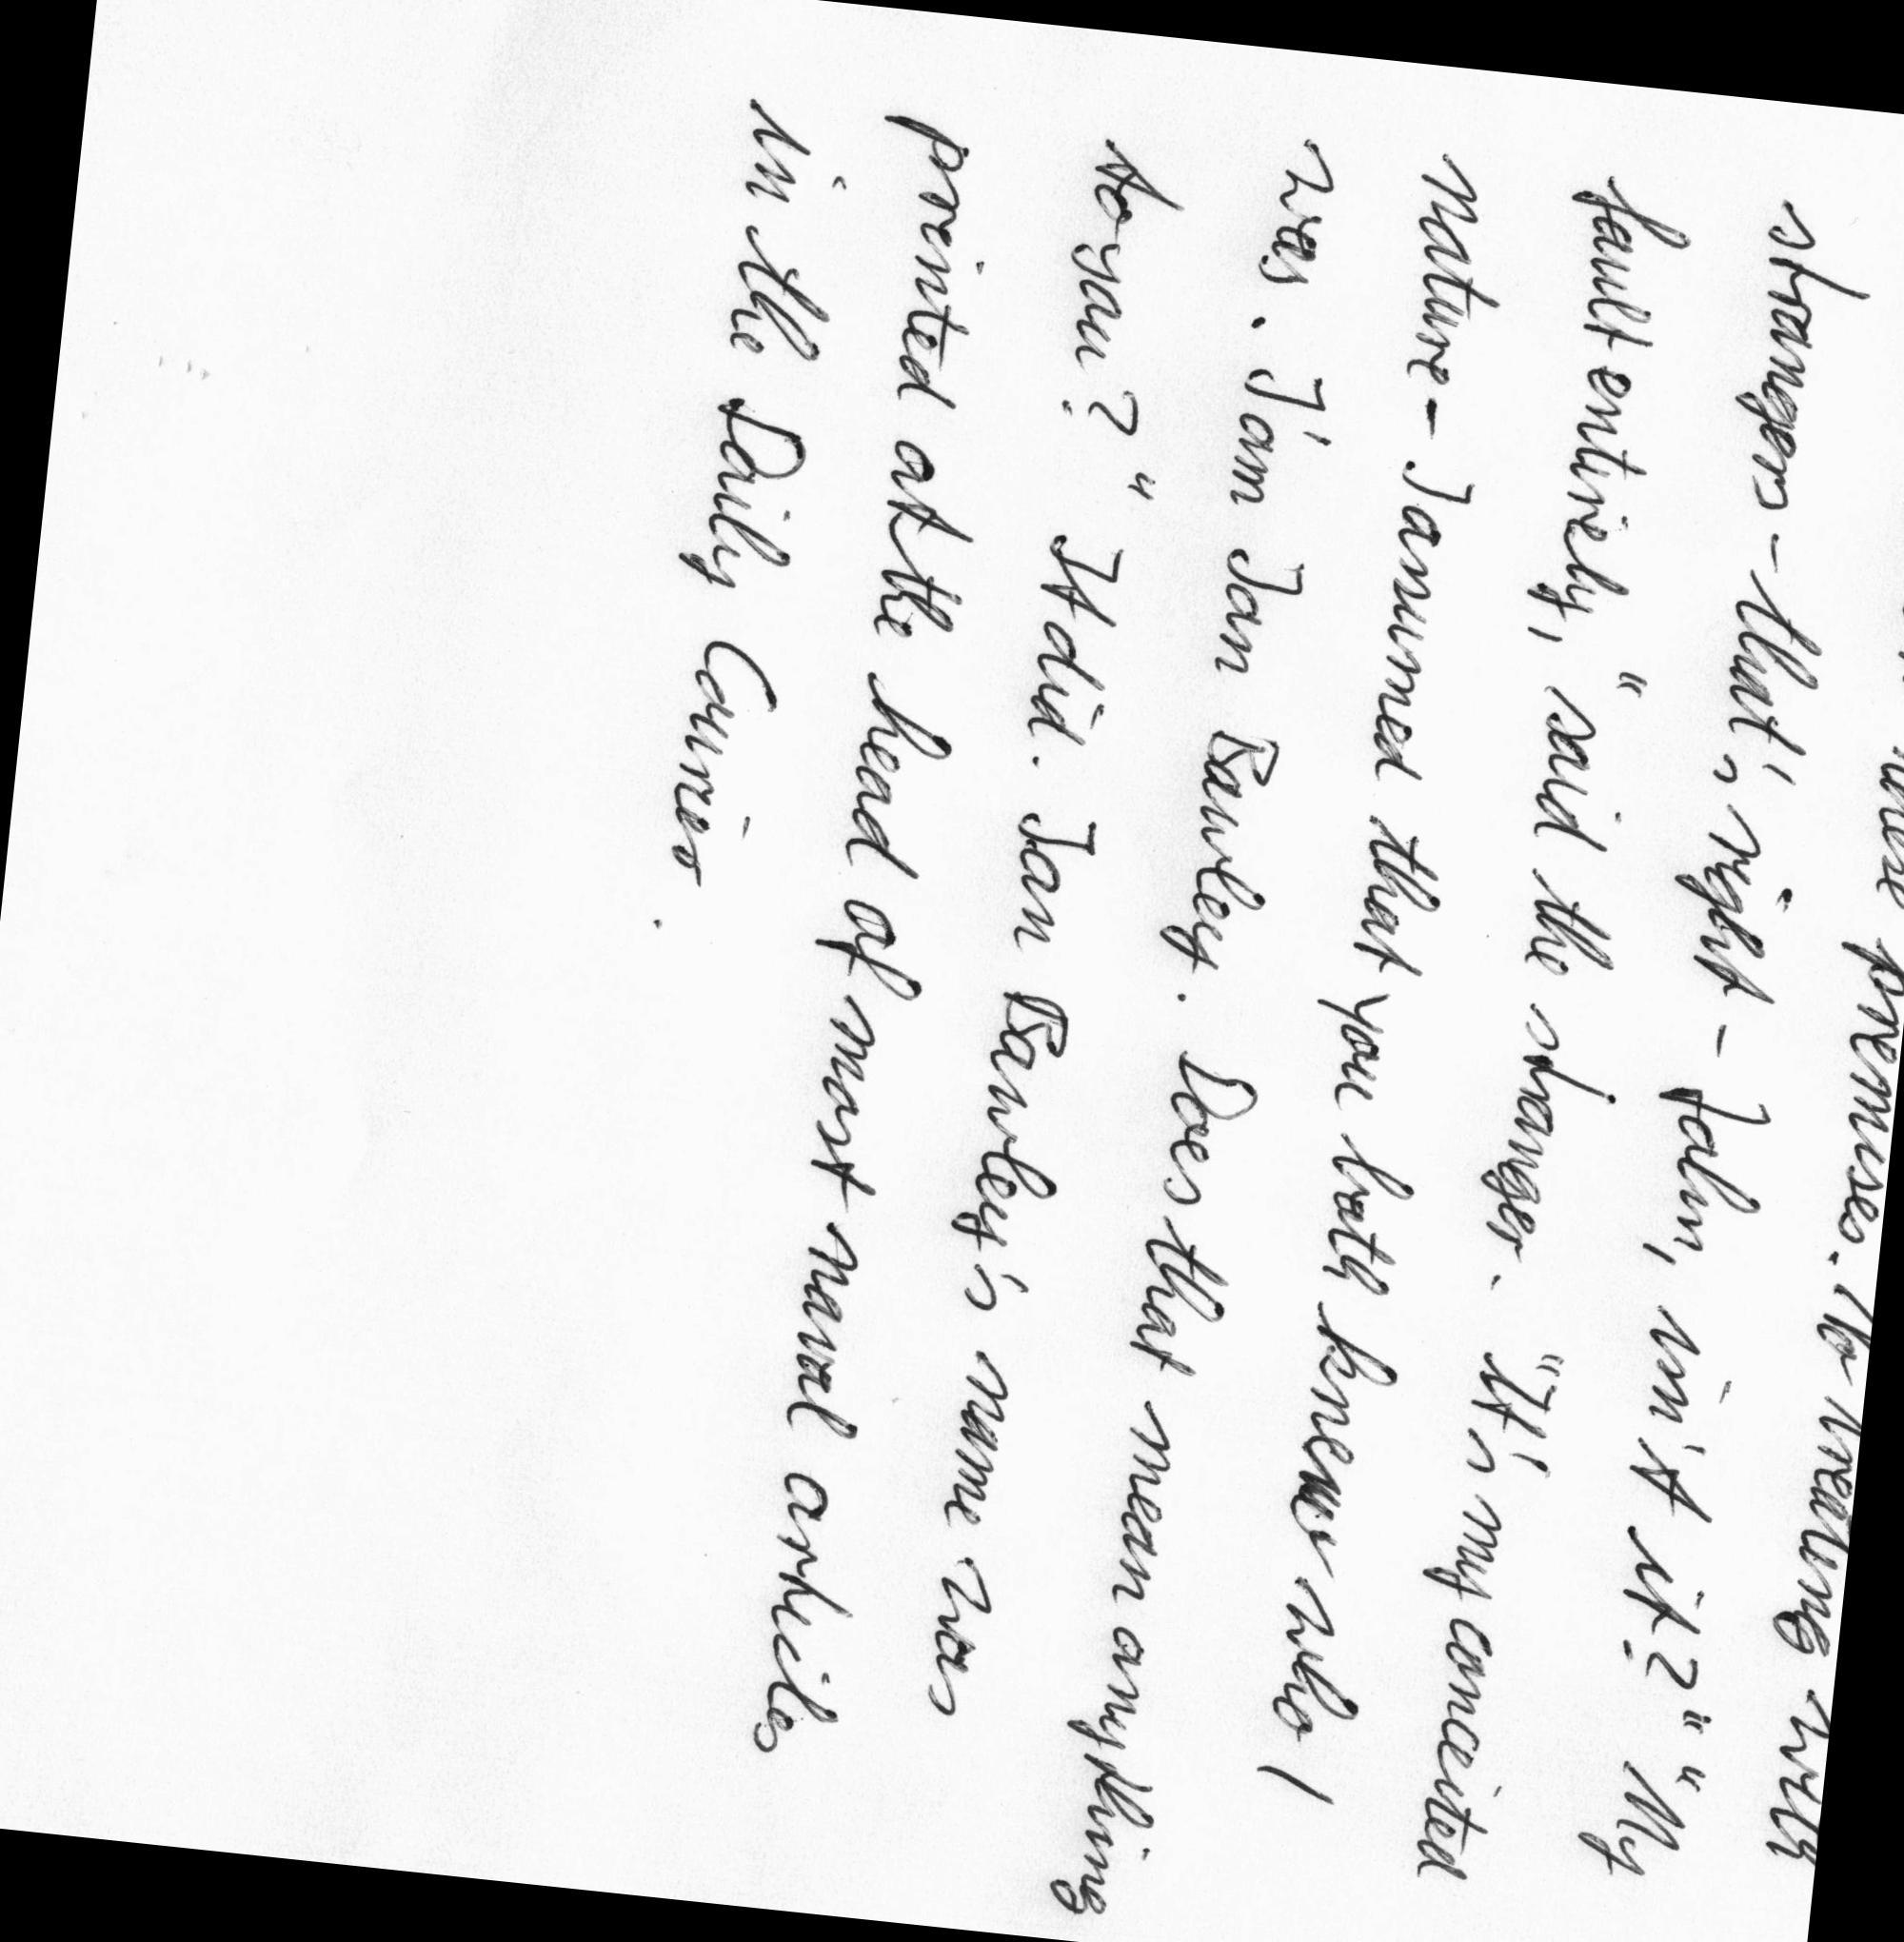 premises. No treating with
strangers - that's right - John, isn't it?" "My
fault entirely," said the stranger. "It's my conceited
nature - I assumed that you both knew who I
was. I'am Ian Bawley. Does that mean anything
to you?" It did. Ian Bawley's name was
printed at the head of most naval articles
in the Daily Courier.